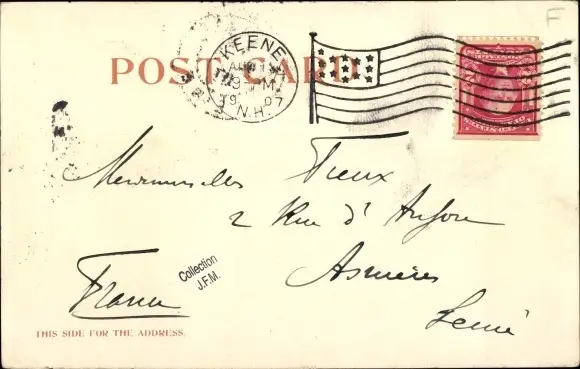 F
KEENE
AUG
9 PM
1907
N.H.
POST CARD
Mesdemoiselles Fieux
2 Rue d'Anjou
Asnières
Seine
France
Collection
J.F.M.
THIS SIDE FOR THE ADDRESS.